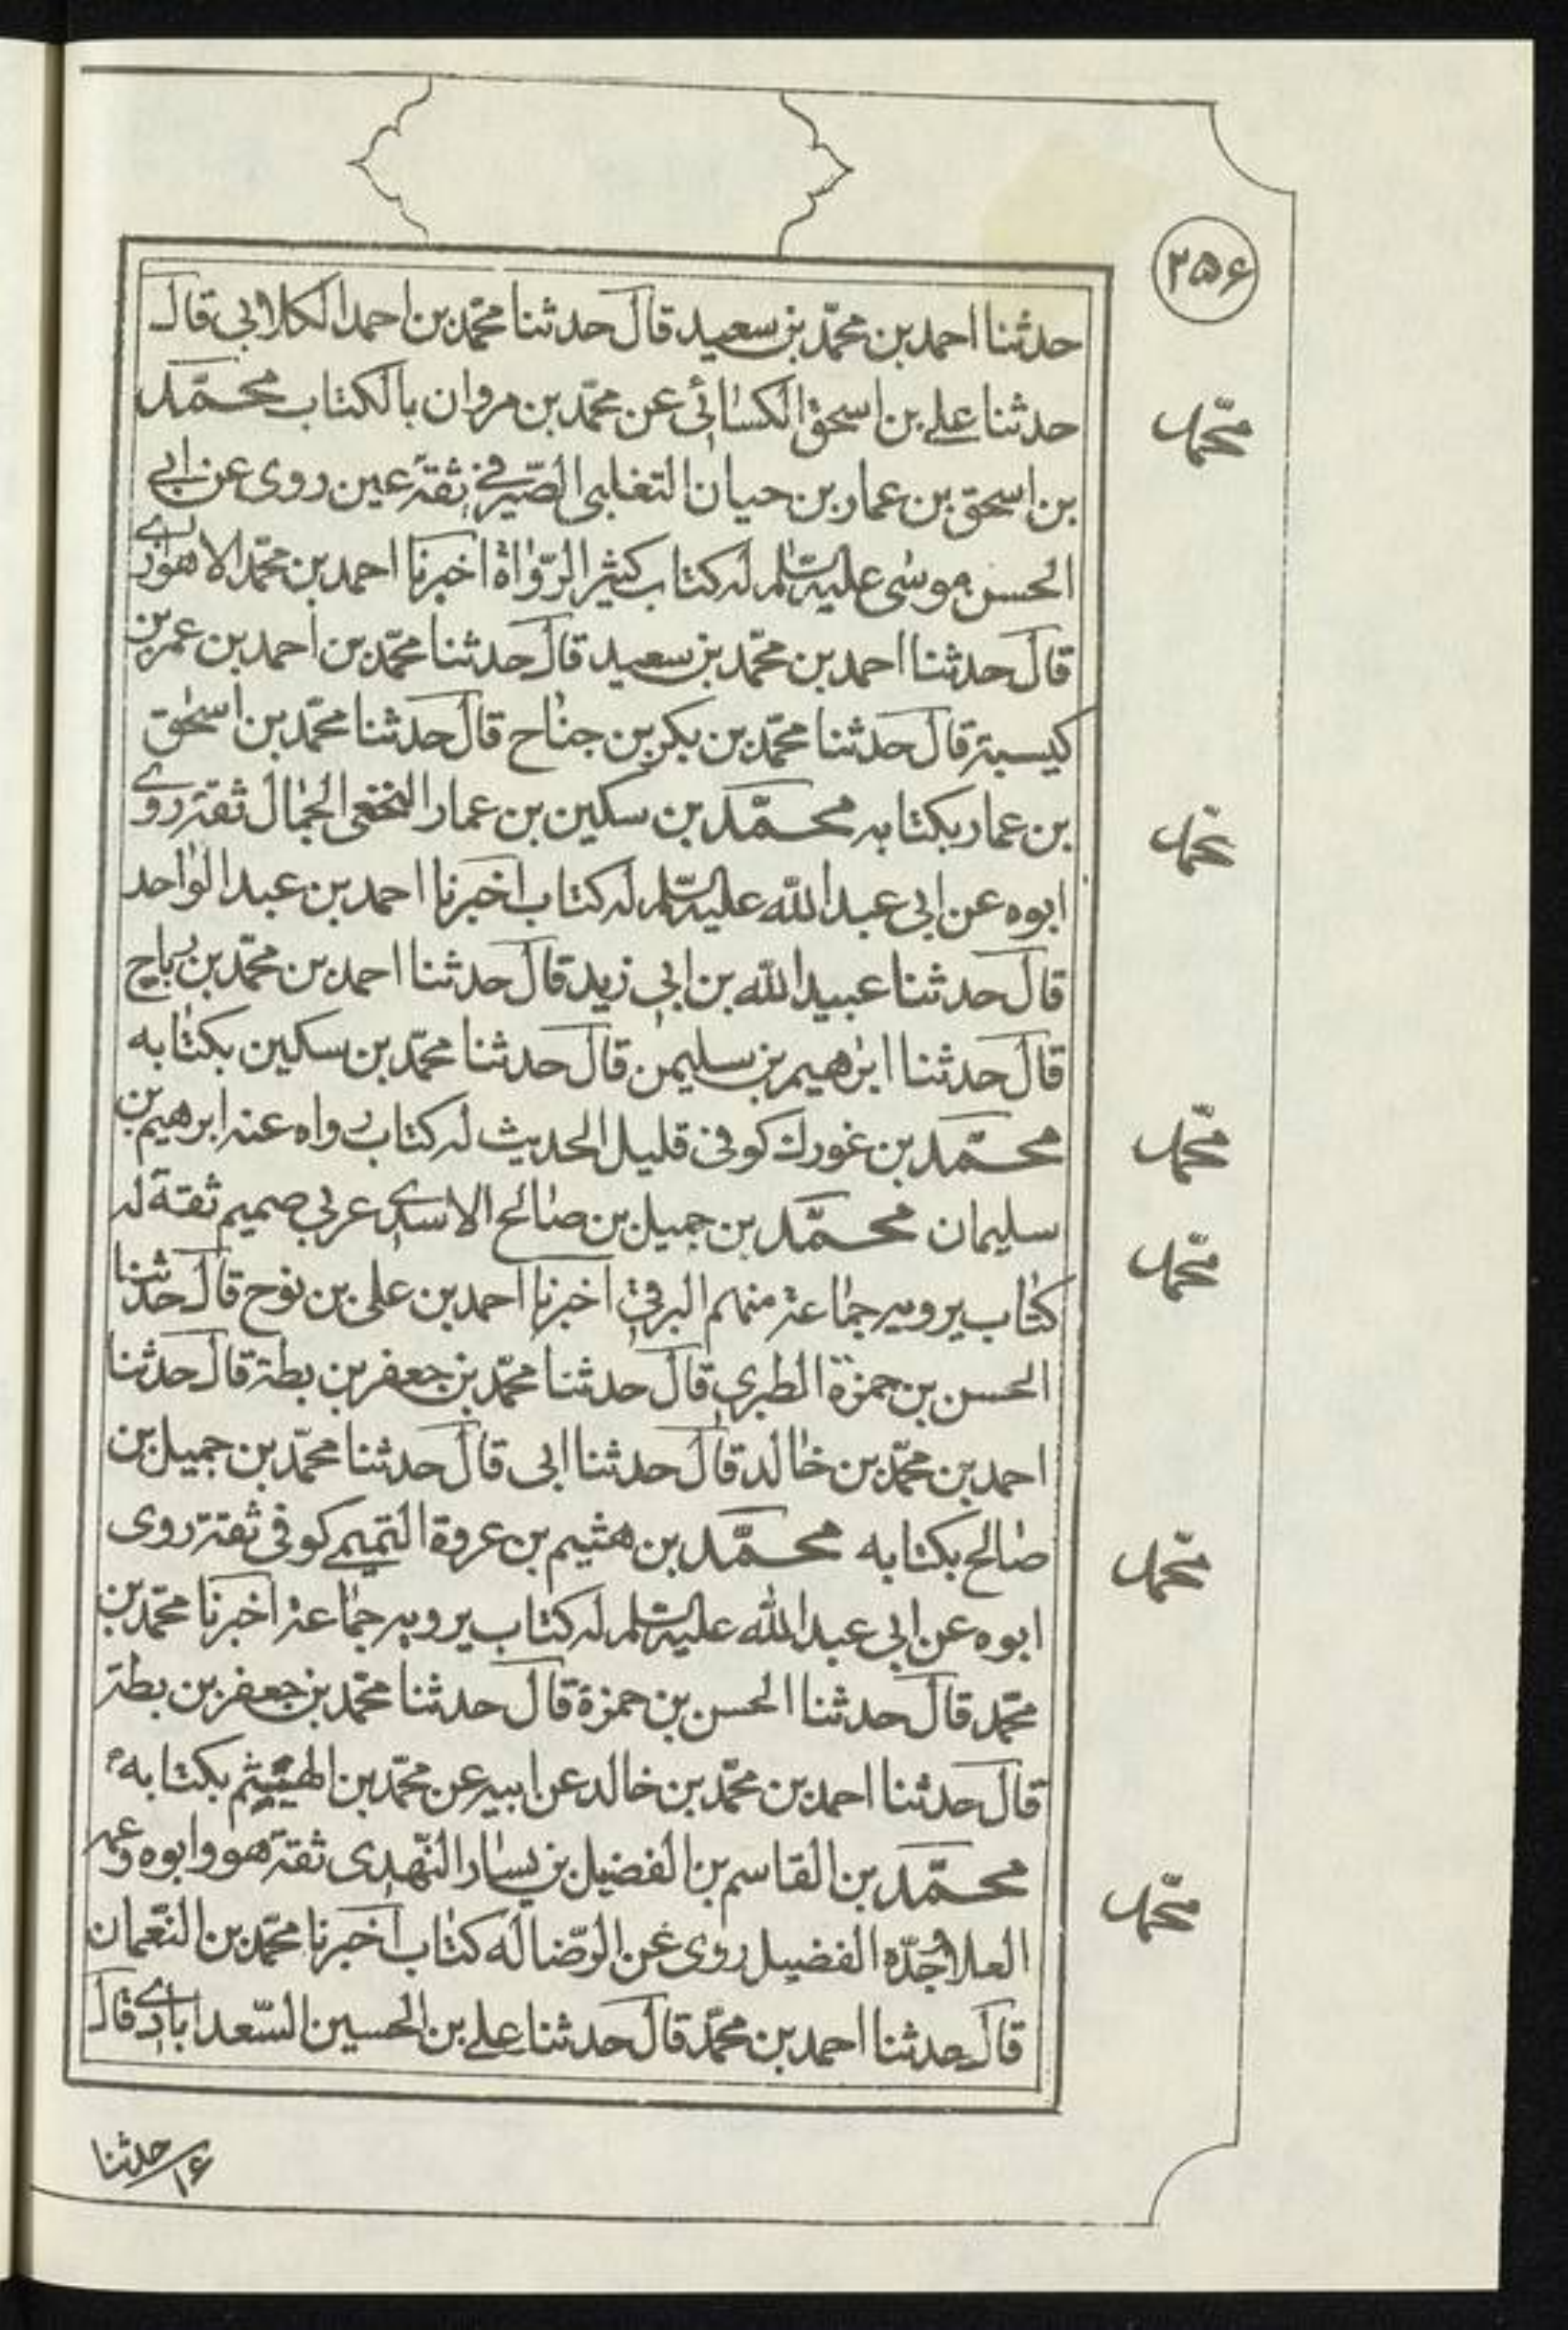 ۲۵۶
حدثنا احمد بن محمّد بن سعيد قال حدثنا محمّد بن احمد الكلابي قال
حدثنا علے بن اسحق الكسائي عن محمّد بن مروان بالكتاب محمّد
محمّد
بن اسحق بن عمار بن حيان التغلبى الصّيرفے ثقة عين روى عن ابى
الحسن موسى عليه السّلم له كتاب كثير الرّواة اخبرنا احمد بن محمّد الاهوازے
قال حدثنا احمد بن محمّد بن سعيد قال حدثنا محمّد بن احمد بن عمر بن
كيسبة قال حدثنا محمّد بن بكر بن جناح قال حدثنا محمّد بن اسحٰق
بن عمار بكتابه محمّد بن سكين بن عمار النخعى الجمال ثقة روے
محمد
ابوه عن ابى عبد الله عليه السّلم له كتاب اخبرنا احمد بن عبد الواحد
قال حدثنا عبيد الله بن ابى زيد قال حدثنا احمد بن محمّد بن رباح
قال حدثنا ابرٰهيم بن سليمٰن قال حدثنا محمّد بن سكين بكتابه
محمّد بن غورك كوفى قليل الحديث له كتاب رواه عنه ابرهيم بن
محمّد
سليمان محمّد بن جميل بن صالح الاسدے عربى صميم ثقة له
محمّد
كتاب يرويه جماعة منهم البرقى اخبرنا احمد بن على بن نوح قال حدثنا
الحسن بن حمزة الطبرى قال حدثنا محمّد بن جعفر بن بطة قال حدثنا
احمد بن محمّد بن خالد قال حدثنا ابى قال حدثنا محمّد بن جميل بن
صالح بكتابه محمّد بن هثيم بن عروة التميمے كوفى ثقة روى
محمّد
ابوه عن ابى عبد الله عليه السّلم له كتاب يرويه جماعة اخبرنا محمّد بن
محمّد قال حدثنا الحسن بن حمزة قال حدثنا محمّد بن جعفر بن بطة
قال حدثنا احمد بن محمّد بن خالد عن ابيه عن محمّد بن الهيثم بكتابه
محمّد بن القاسم بن الفضيل بن يسار النّهدى ثقة هو وابوه وعمه
محمّد
العلا وجدّه الفضيل روى عن الرّضا له كتاب اخبرنا محمّد بن النّعمان
قال حدثنا احمد بن محمّد قال حدثنا علے بن الحسين السّعدابادے قال
حدثنا
۱۶